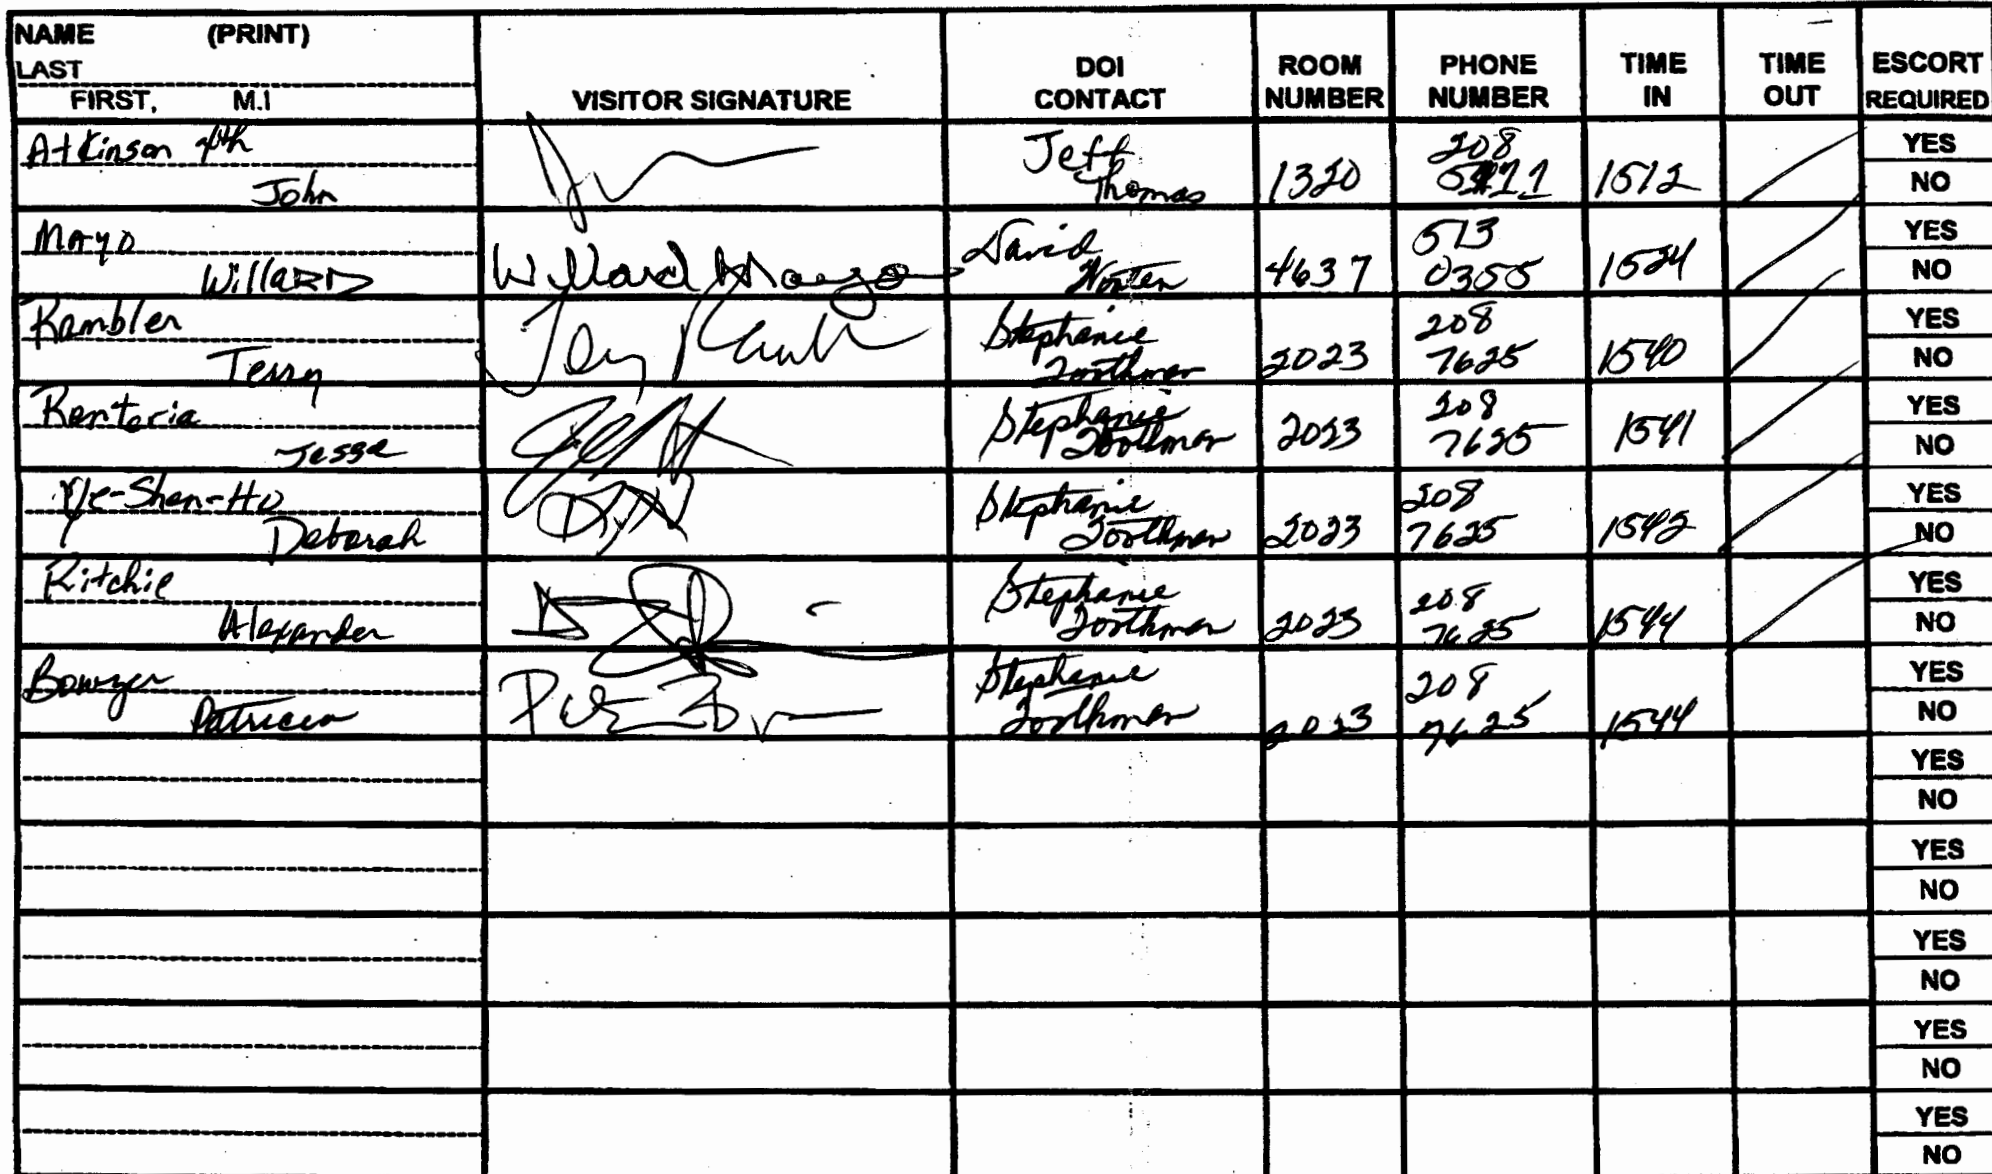 NAME (PRINT)
LAST
FIRST, M.I
VISITOR SIGNATURE
DOI CONTACT
ROOM NUMBER
PHONE NUMBER
TIME IN
TIME OUT
ESCORT REQUIRED
Atkinson 4th
John
Jeff Thomas
1320
208
1512
YES
NO
Mayo
Willard
Willard Mayo
David
4637
513 0355
1524
YES
NO
Rambler
Terry
Stephanie Toothman
2023
208 7625
1540
YES
NO
Renteria
Jesse
Stephanie Toothman
2023
208 7625
1541
YES
NO
Ye-Shen-Ho
Deborah
Stephanie Toothman
2023
208 7625
1542
YES
NO
Ritchie
Alexander
Stephanie Toothman
2023
208 7625
1544
YES
NO
Bowyer
Patricia
Stephanie Toothman
2023
208 7625
1544
YES
NO
YES
NO
YES
NO
YES
NO
YES
NO
YES
NO